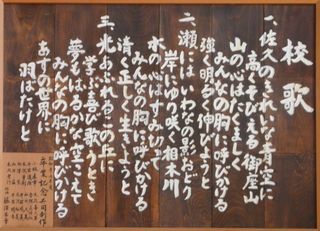 校歌
一、佐久のきれいな青空に
高くそびえる御座山
山の心はたくましく
みんなの胸に呼びかける
強く明るく伸びようと
二、瀬にはいわなの影おどり
岸にゆり咲く相木川
水の心はすみ
みんなの胸に呼びかける
清く正しく生きようと
三、光あふれるこの丘に
学ぶ喜び歌うとき
夢もはるかな空こえて
みんなの胸に呼びかける
あすの世界に
羽ばたけと
卒業記念共同制作